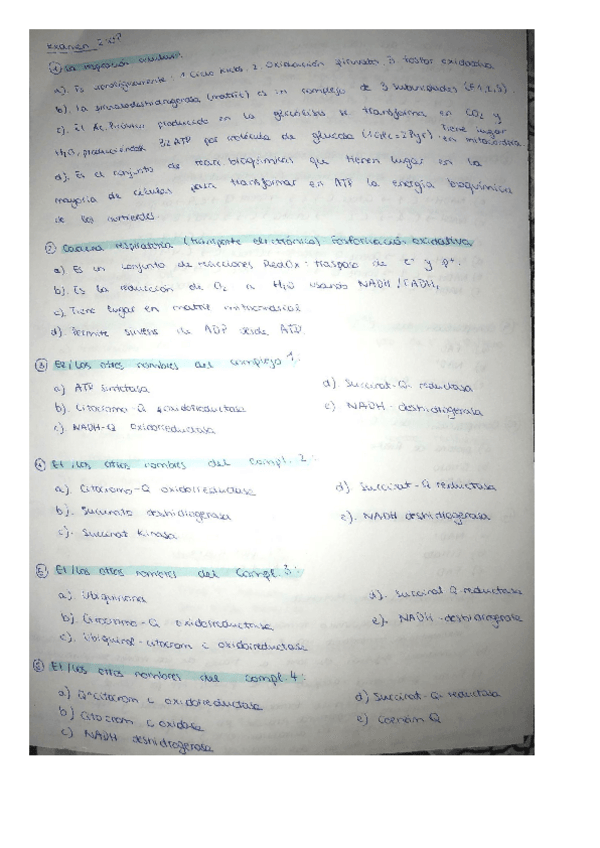 Examen 2º
① La respiración celular:
a). Es cronológicamente: 1 Ciclo Krebs. 2. Oxidación piruvato. 3. fosfor oxidativa
b). La piruvatodeshidrogenasa (matriz) es un complejo de 3 subunidades (E1,2,3).
c). El Ác. Pirúvico producido en la glucólisis se transforma en CO2 y
H2O, produciéndose 32 ATP por molécula de glucosa (1Glc=2Pyr). Tiene lugar en mitocondria.
d). Es el conjunto de reacc bioquímicas que tienen lugar en la
mayoría de células para transformar en ATP la energía bioquímica
de los nutrientes.
② Cadena respiratoria (transporte electrónico) Fosforilación oxidativa
a) Es un conjunto de reacciones RedOx: traspaso de e- y p+.
b). Es la reducción de O2 a H2O usando NADH / FADH2
c). Tiene lugar en matriz mitocondrial
d). Permite síntesis de ADP desde ATP.
③ El/los otros nombres del complejo 1:
a) ATP sintetasa
b). Citocromo-Q oxidorreductasa
c). NADH-Q oxidorreductasa
d). Succinat-Q-reductasa
e) NADH-deshidrogenasa
④ El/los otros nombres del compl. 2:
a). Citocromo-Q oxidorreductasa
b). Succinato deshidrogenasa
c). Succinat kinasa
d) Succinat-Q reductasa
e). NADH deshidrogenasa
⑤ El/los otros nombres del compl. 3:
a) Ubiquinona
b) Citocromo-Q oxidoreductasa
c). Ubiquinol-citocrom c oxidoreductasa
d). Succinat Q-reductasa
e). NADH-deshidrogenasa
El/los otros nombres del compl. 4:
a) Q-citocrom c oxidorreductasa
b) Citocrom c oxidasa
c) NADH deshidrogenasa
d) Succinat-Q-reductasa
e) Coenzim Q